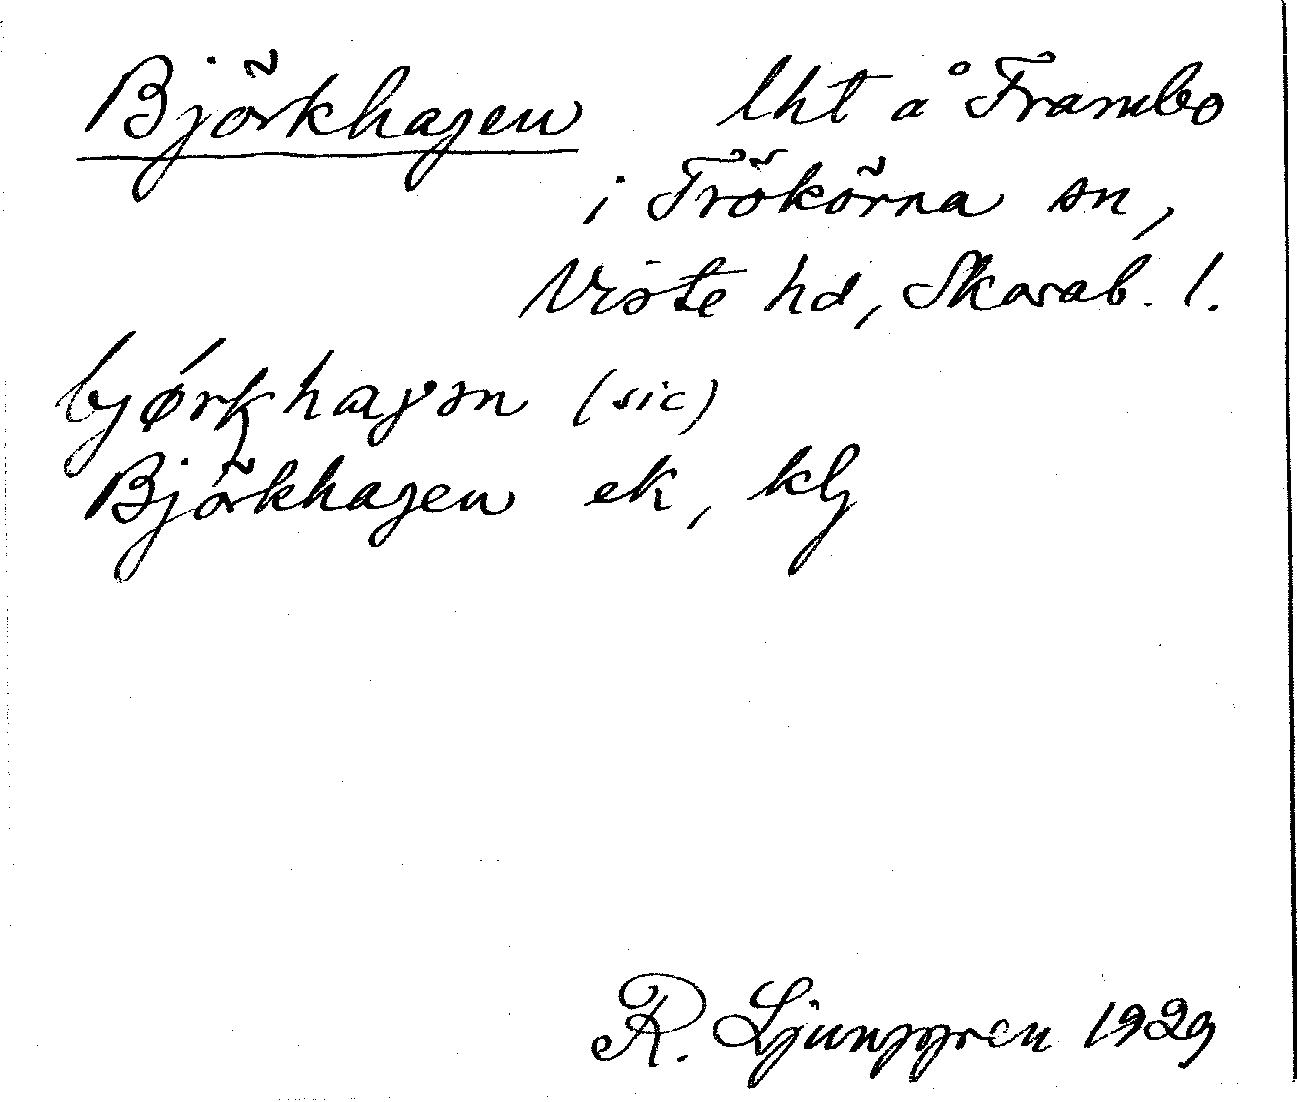 Björkhagen lht å Frambo
i Frökörna sn,
Viste hd, Skarab. l.
bjørkhagən (sic)
Björkhagen ek, klj
R. Ljunggren 1929